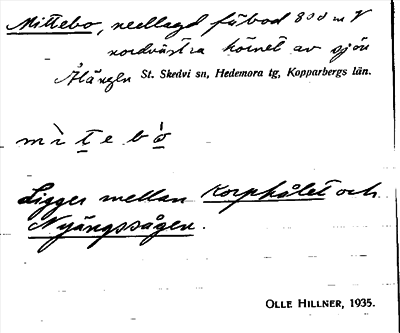 Mittebo, nedlagd fäbod 800 m V
nordvästra hörnet av sjön
Ålängen St. Skedvi sn, Hedemora tg, Kopparbergs län.
mìtebò
Ligger mellan Korphålet och
Nyängssågen.
OLLE HILLNER, 1935.